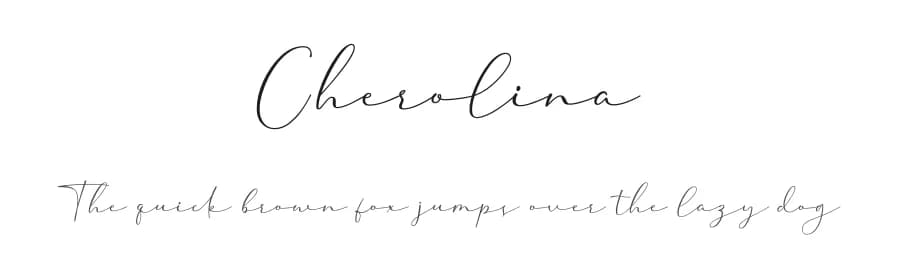 Cherolina
The quick brown fox jumps over the lazy dog